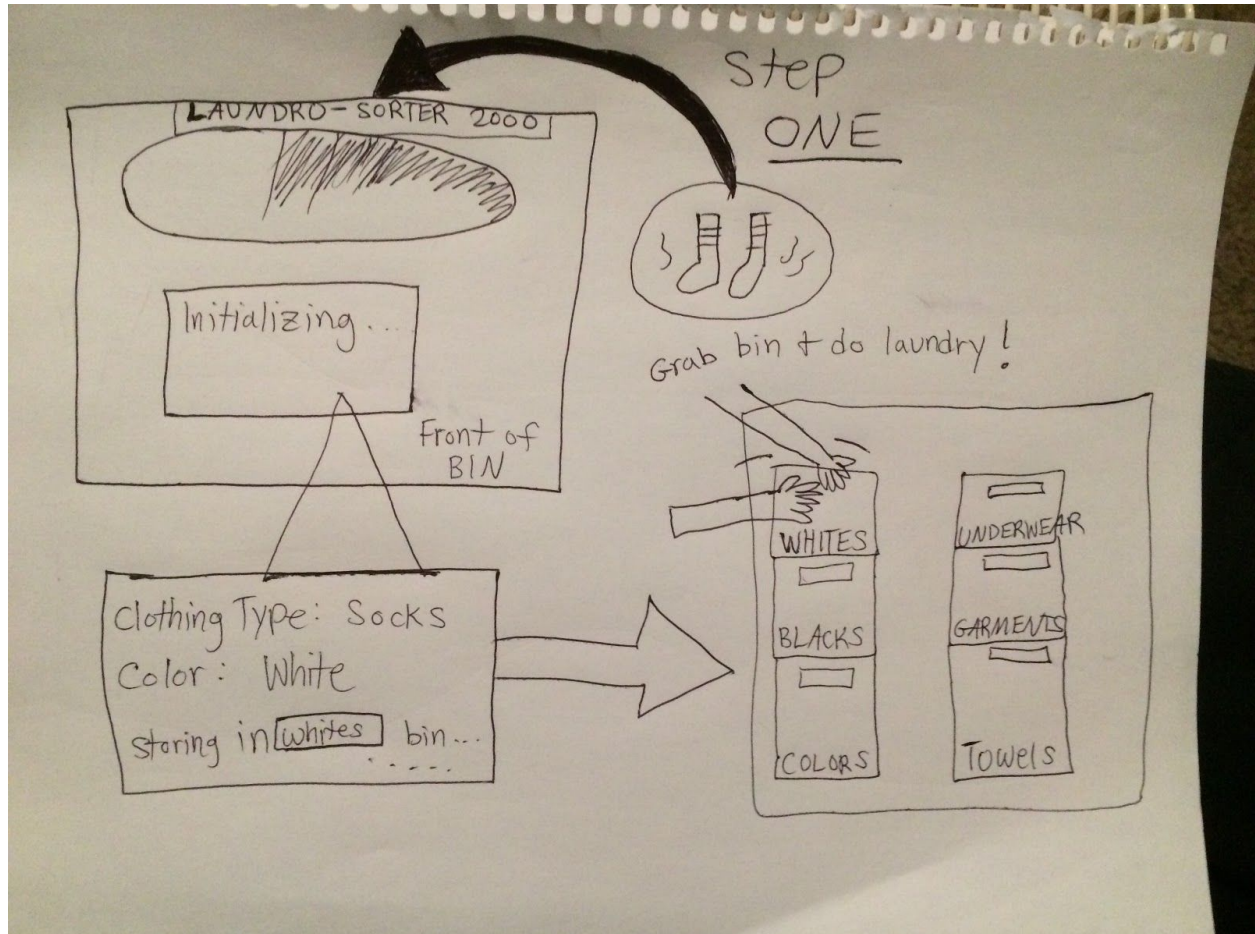 Step
ONE
LAUNDRO-SORTER 2000
Initializing...
Front of
BIN
Grab bin + do laundry!
Clothing Type: Socks
Color: White
storing in whites bin...
WHITES
BLACKS
COLORS
UNDERWEAR
GARMENTS
Towels